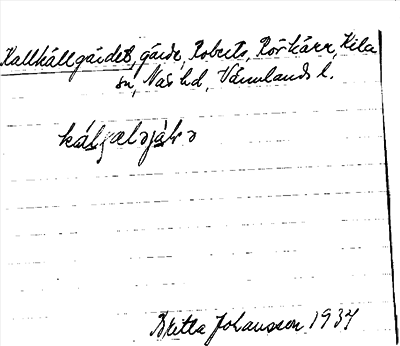 Kallkällgärdet, gärde, Roberts, Rörkärr, Kila
sn, Näs hd, Värmlands l.
Britta Johansson 1934